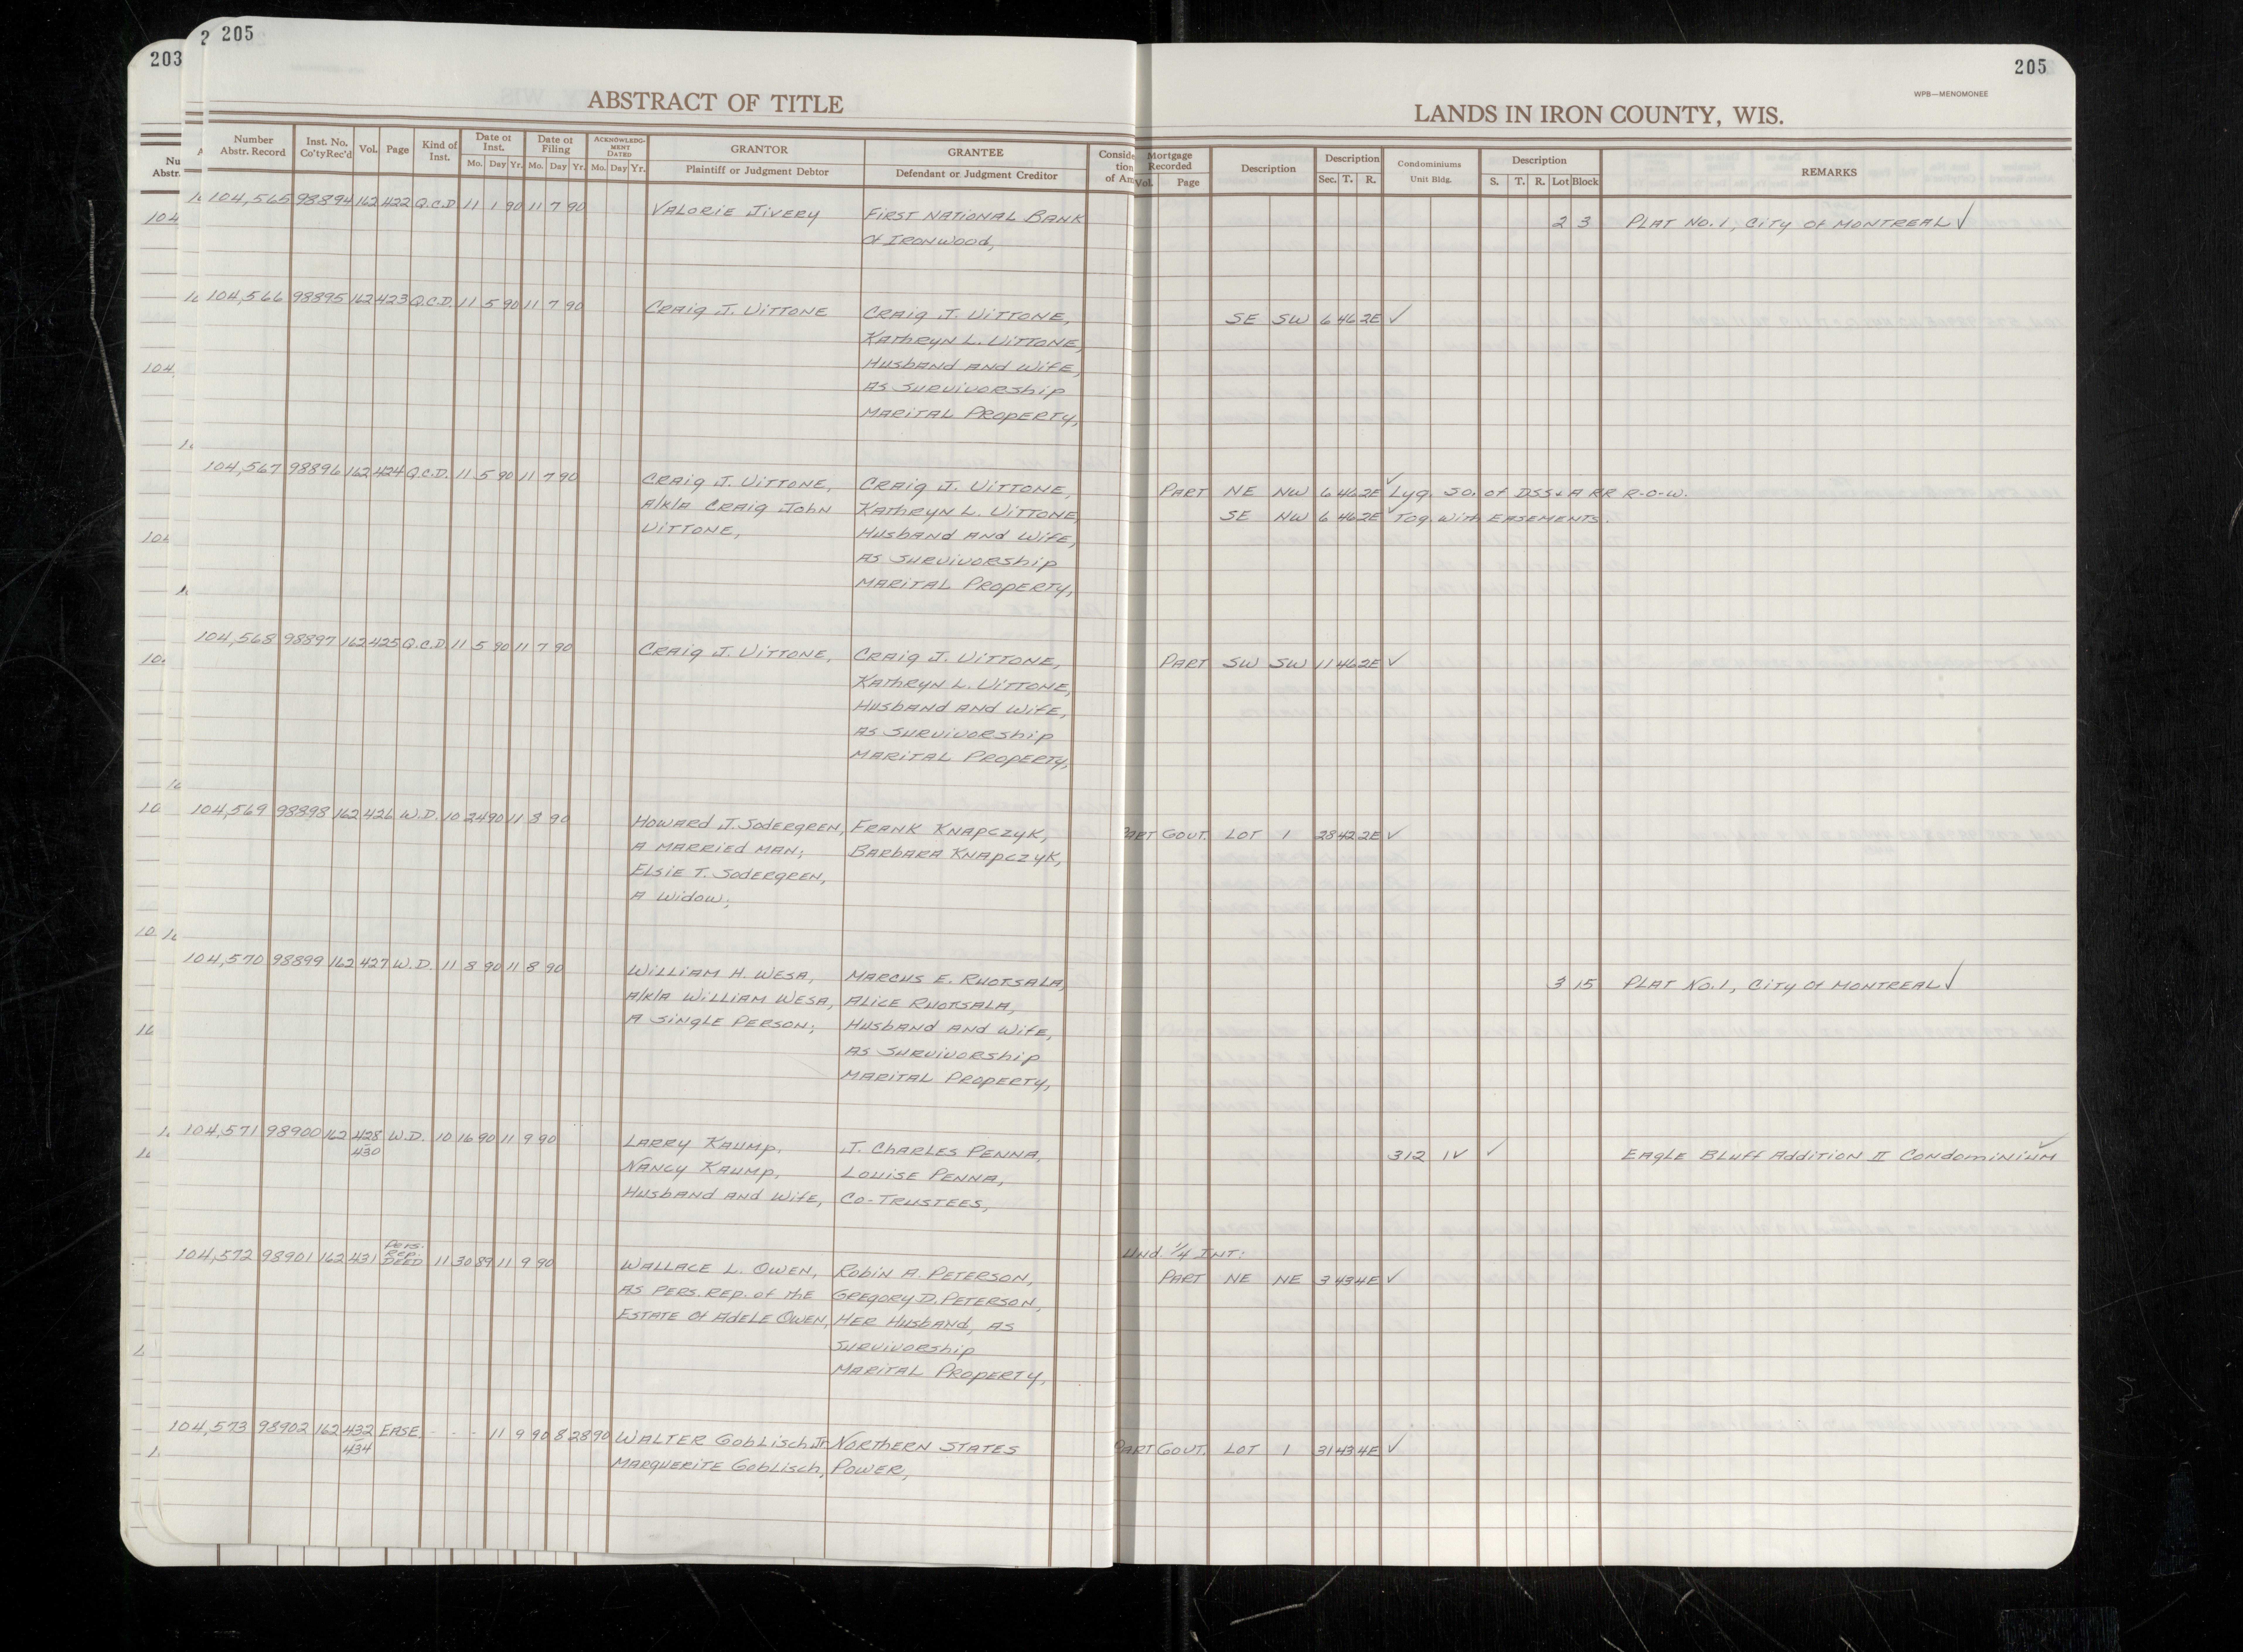 203
2
205
205
WPB—MENOMONEE
ABSTRACT OF TITLE
LANDS IN IRON COUNTY, WIS.
Number Abstr. Record
Inst. No. Co'ty Rec'd
Vol.
Page
Kind of Inst.
Date of Inst.
Mo. Day Yr.
Date of Filing
Mo. Day Yr.
ACKNOWLEDGMENT DATED
Mo. Day Yr.
GRANTOR
Plaintiff or Judgment Debtor
GRANTEE
Defendant or Judgment Creditor
Mortgage Recorded
Vol. Page
Description
Description
Sec. T. R.
Condominiums
Unit Bldg.
Description
S. T. R. Lot Block
REMARKS
104,565 98894 162 422 Q.C.D. 11 1 90 11 7 90 VALORIE JIVERY FIRST NATIONAL BANK 2 3 PLAT NO. 1, CITY OF MONTREAL ✓
OF IRONWOOD,
104,566 98895 162 423 Q.C.D. 11 5 90 11 7 90 CRAIG J. VITTONE CRAIG J. VITTONE, SE SW 6 46 2E ✓
KATHRYN L. VITTONE,
HUSBAND AND WIFE,
AS SURVIVORSHIP
MARITAL PROPERTY,
104,567 98896 162 424 Q.C.D. 11 5 90 11 7 90 CRAIG J. VITTONE, CRAIG J. VITTONE, PART NE NW 6 46 2E ✓ Lyg. So. of DSS & A RR R-O-W.
A/K/A CRAIG JOHN KATHRYN L. VITTONE, SE NW 6 46 2E ✓ Tog. with EASEMENTS.
VITTONE, HUSBAND AND WIFE,
AS SURVIVORSHIP
MARITAL PROPERTY,
104,568 98897 162 425 Q.C.D. 11 5 90 11 7 90 CRAIG J. VITTONE, CRAIG J. VITTONE, PART SW SW 11 46 2E ✓
KATHRYN L. VITTONE,
HUSBAND AND WIFE,
AS SURVIVORSHIP
MARITAL PROPERTY,
104,569 98898 162 426 W.D. 10 24 90 11 8 90 HOWARD J. SODERGREN, FRANK KNAPCZYK, PART GOVT. LOT 1 28 42 2E ✓
A MARRIED MAN; BARBARA KNAPCZYK,
ELSIE T. SODERGREN,
A WIDOW;
104,570 98899 162 427 W.D. 11 8 90 11 8 90 WILLIAM H. WESA, MARCUS E. RUOTSALA, 3 15 PLAT NO. 1, CITY OF MONTREAL ✓
A/K/A WILLIAM WESA, ALICE RUOTSALA,
A SINGLE PERSON; HUSBAND AND WIFE,
AS SURVIVORSHIP
MARITAL PROPERTY,
104,571 98900 162 428 W.D. 10 16 90 11 9 90 LARRY KAUMP, J. CHARLES PENNA, 312 IV ✓ EAGLE BLUFF ADDITION II CONDOMINIUM ✓
430 NANCY KAUMP, LOUISE PENNA,
HUSBAND AND WIFE, CO-TRUSTEES,
Pers. Rep. Und. 1/4 INT:
104,572 98901 162 431 DEED 11 30 89 11 9 90 WALLACE L. OWEN, ROBIN A. PETERSON, PART NE NE 3 43 4E ✓
AS PERS. REP. OF THE GREGORY D. PETERSON,
ESTATE OF ADELE OWEN, HER HUSBAND, AS
SURVIVORSHIP
MARITAL PROPERTY,
104,573 98902 162 432 EASE. - - - 11 9 90 8 28 90 WALTER GOBLISCH, Jr. NORTHERN STATES PART GOVT. LOT 1 31 43 4E ✓
434 MARQUERITE GOBLISCH, POWER,